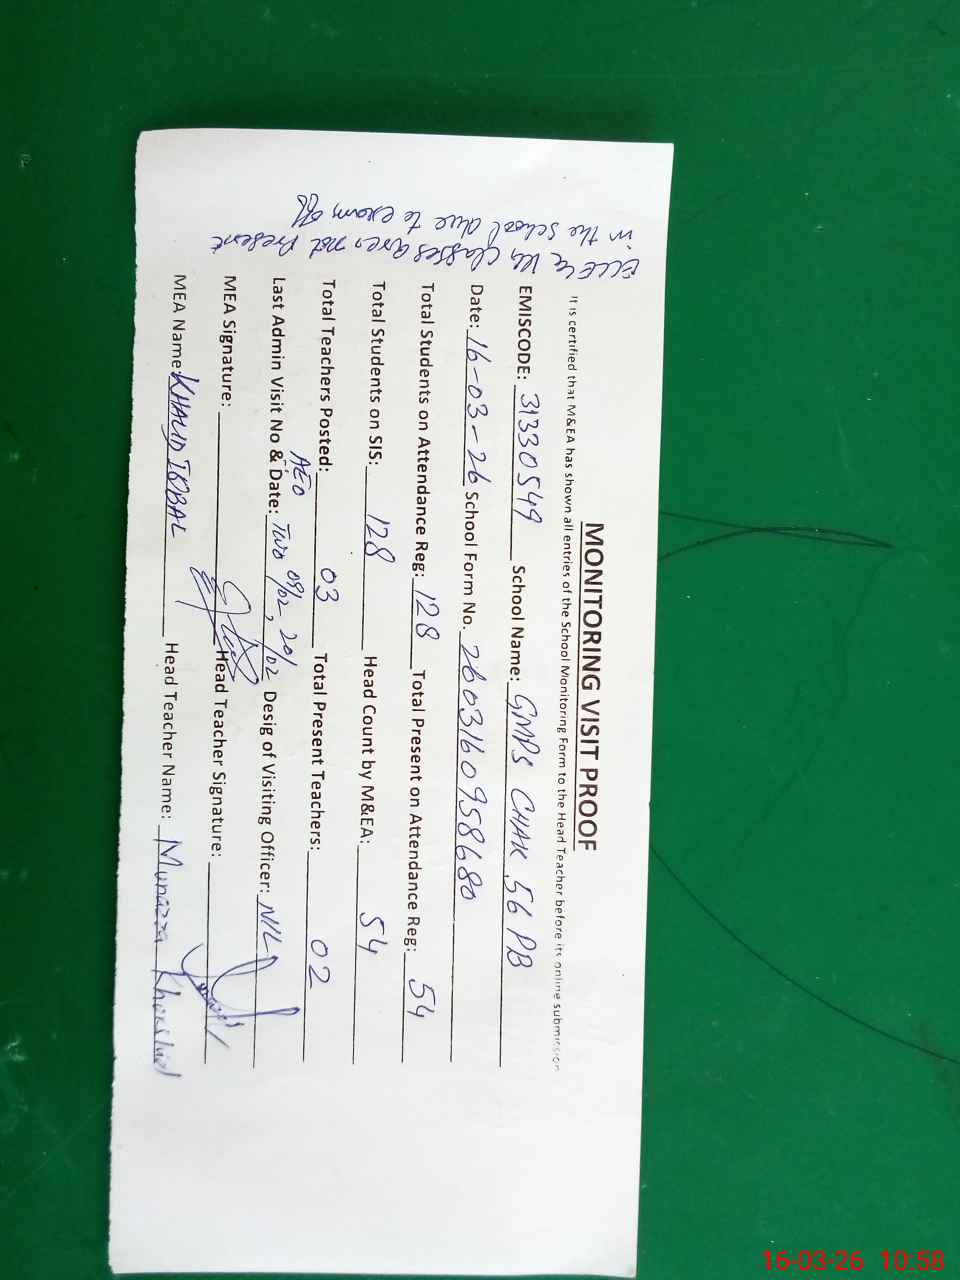 MONITORING VISIT PROOF
It is certified that M&EA has shown all entries of the School Monitoring Form to the Head Teacher before its online submission
EMISCODE: 31330549 School Name: GMPS CHAK 56 PB
Date: 16-03-26 School Form No. 2603160958680
Total Students on Attendance Reg: 128 Total Present on Attendance Reg: 54
Total Students on SIS: 128 Head Count by M&EA: 54
Total Teachers Posted: 03 Total Present Teachers: 02
AEO
Last Admin Visit No & Date: Two 09/02, 20/02 Desig of Visiting Officer: NIL
MEA Signature: Head Teacher Signature:
MEA Name: KHALID IQBAL Head Teacher Name: Munazza Khorshid
classes are not Present
in the school due to exam off
16-03-26 10:58